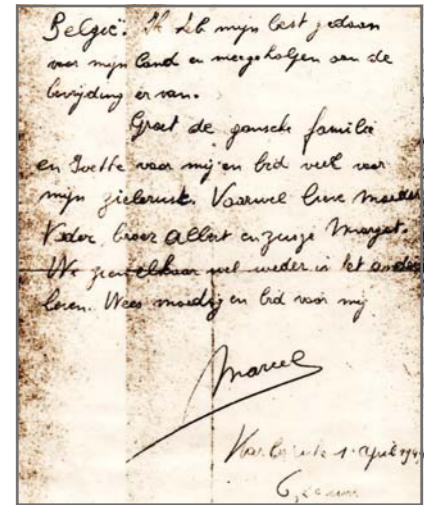 België. Ik heb mijn best gedaan
voor mijn land en meegeholpen aan de
bevrijding er van.
Groet de gansche familie
en Yvette voor mij en bid veel voor
mijn zielerust. Vaarwel lieve moeder
Vader, broer Albert en zusje Margot.
We zien elkaar wel weder in het ander
leven. Wees moedig en bid voor mij
Marcel
Karlsruhe 1 april 194
6,20 uur